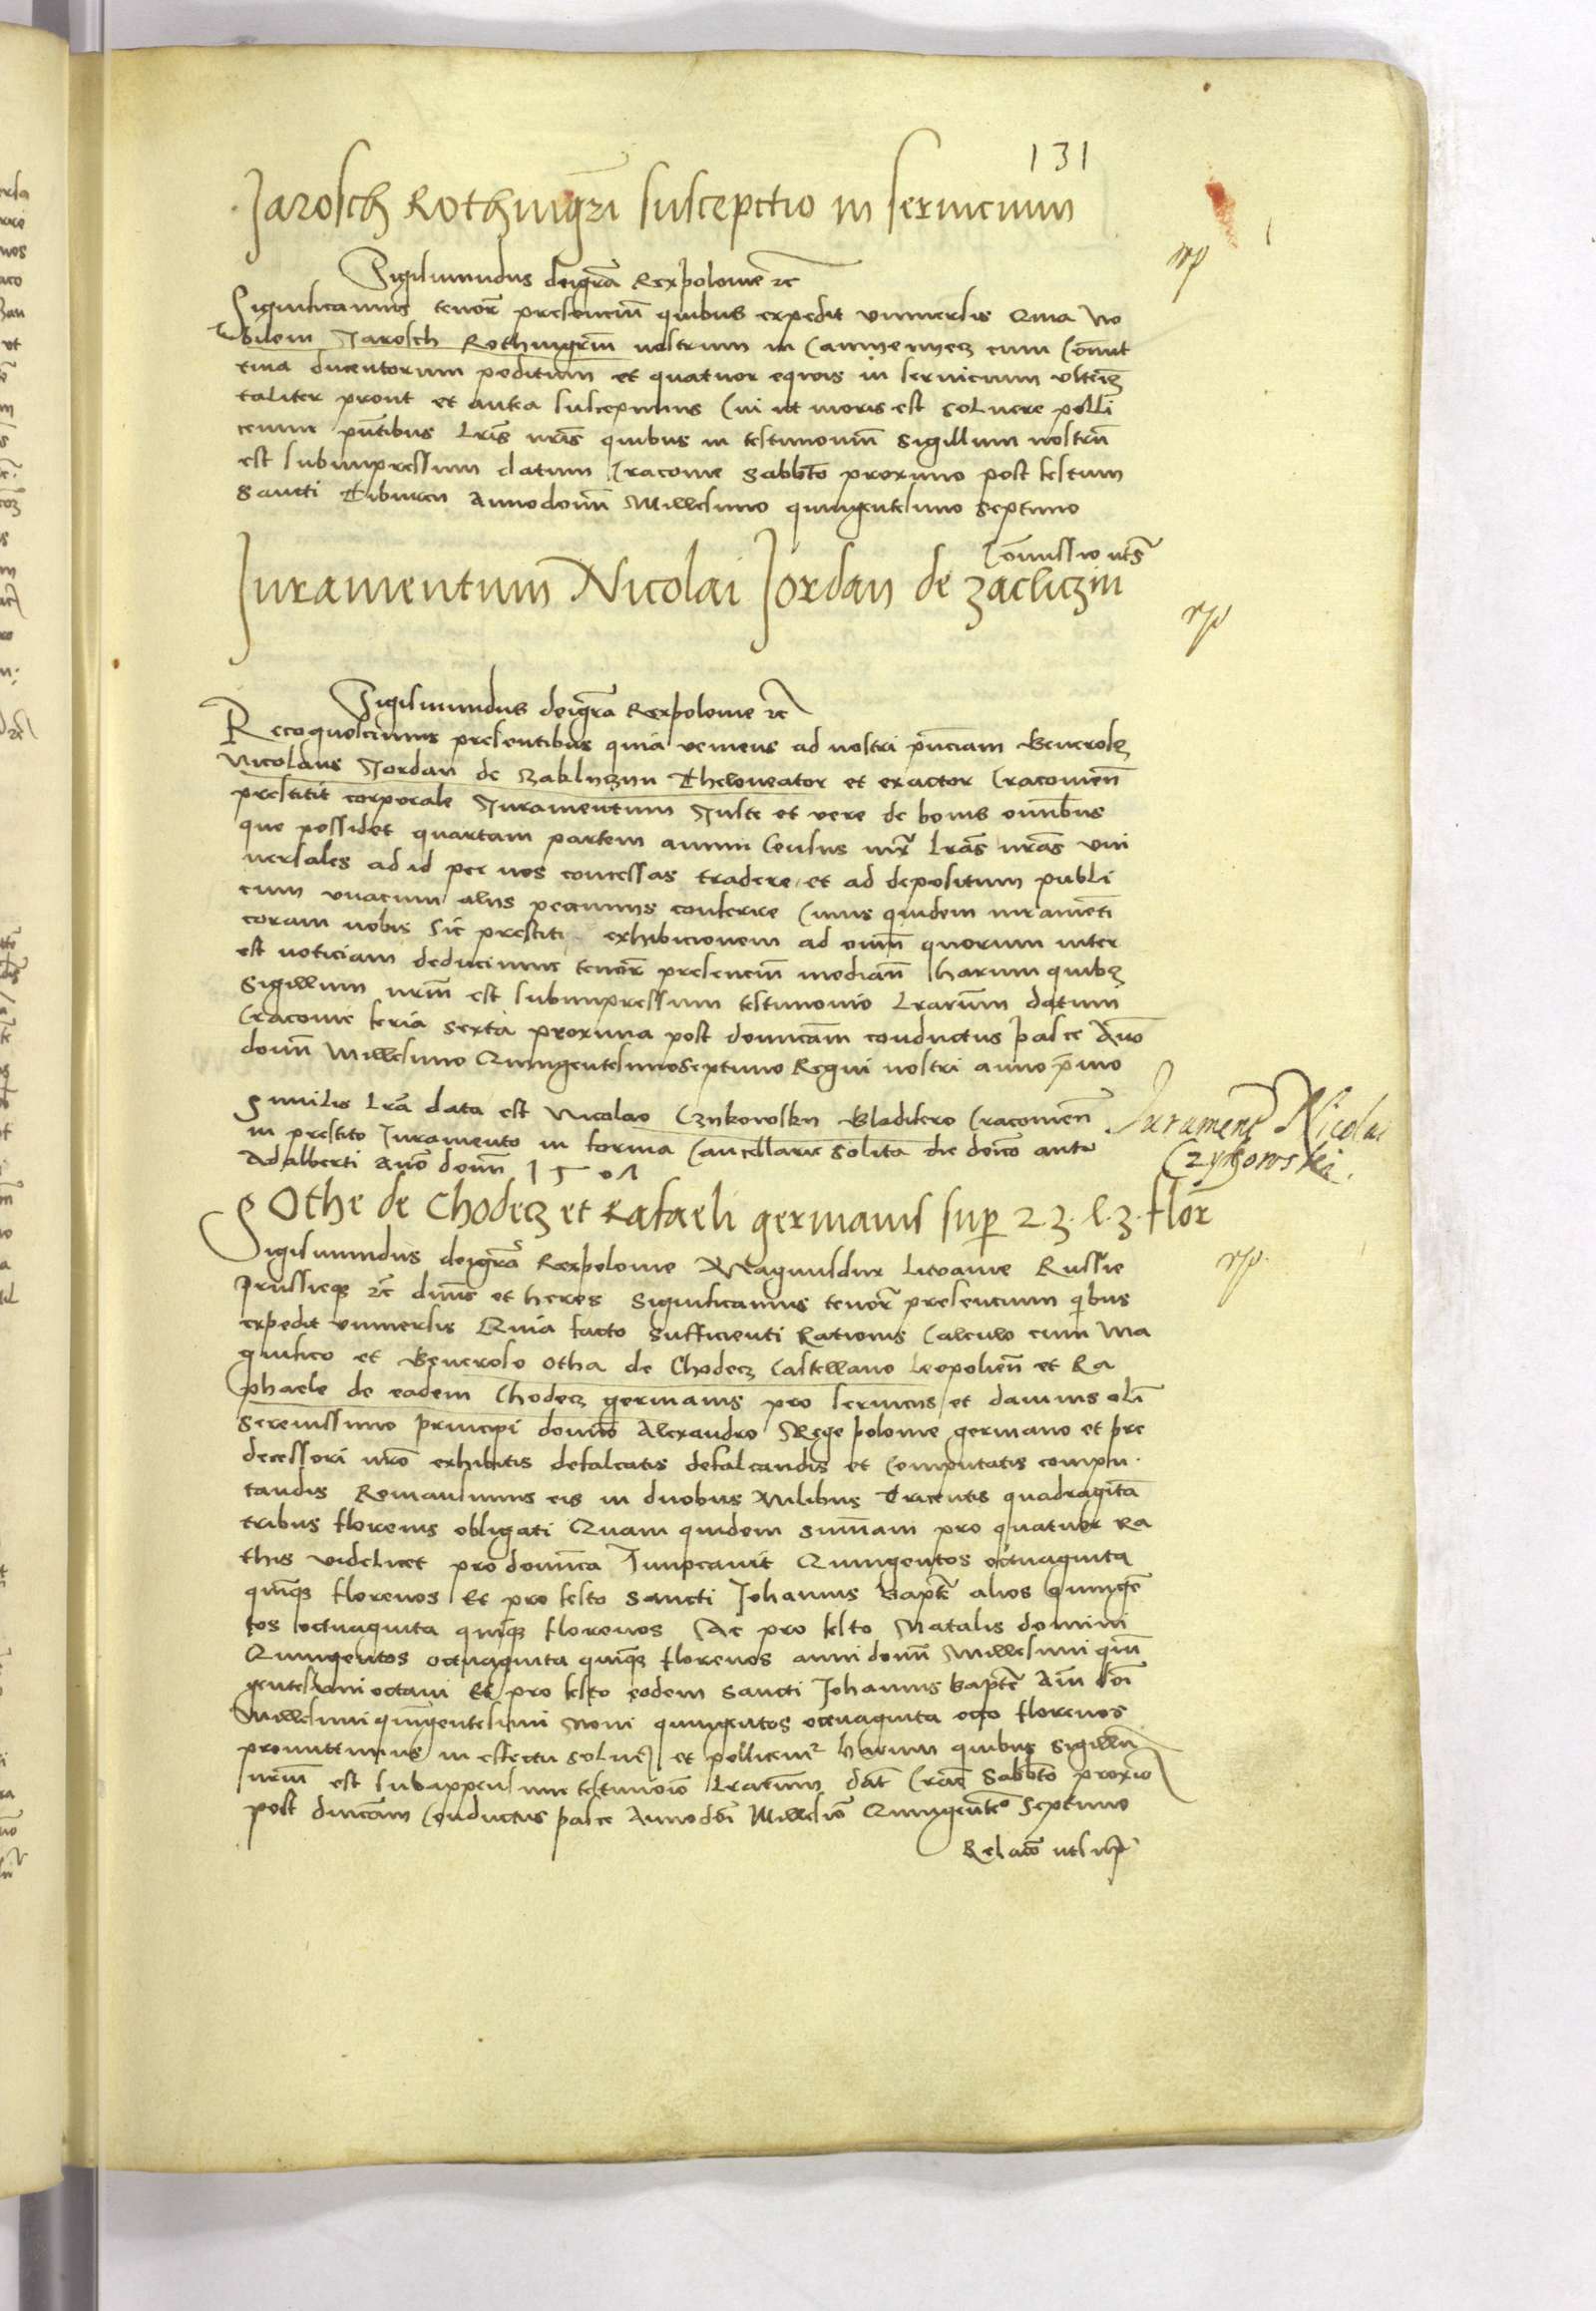 131
Jarosch Rothmgri susceptio in seruicium
rp
Sigismundus deigra Rexpolonie etc
Significamus tenore presenciu quibus expedit vniuersis Quia No
bilem Jarosch Rothmgrm nostrum in Camyenyecz cum Comit
tiua ducentorum peditum et quatuor equis in seruicium
taliter prout et antea suscepimus Cui ut moris est soluere polli
cemur pntibus lris nris quibus in testimoniu sigillum nostru
est subimpressum datum Cracouie Sabbto proximo post festum
Sancti Tiburcii Annodomi Millesimo quingentesimo septimo
Comissio uts
Juramentum Nicolai Jordan de zacliczin
rp
Sigismundus deigra Rexpolonie etc
Recognoscimus presentibus quia veniens ad nostri pnciam Generosus
Nicolaus Jordan de Zakliczin Theloneator et exactor Cracouien
prestitit corporale Juramentum Juste et vere de bonis omnibus
que possidet quartam partem annui Census iux lras nras vni
uersales ad id per nos concessas tradere et ad depositum publi
cum vnacum aliis pecuniis conferre Cuius quidem iuramenti
coram nobis sic prestiti exhibicionem ad omn quorum inter
est noticiam deducimus tenore presenciu median harum quibus
Sigillum nrm est subimpressum testimonio lrarum datum
Cracouie feria sexta proxima post domicam conductus pasce Ano
domi Millesimo Quingentesimoseptimo Regni nostri anno primo
Similis lra data est Nicolao Czikowski Gladifero Cracouien
in prestito Juramento in forma Cancellarie solita die doico ante
Adalberti Ano domi 1507
Jurament Nicolai
Czykowski
Othe de Chodecz et Rafaeli germanis sup 2.3.l.3. flor
rp
Sigismundus deigra Rexpolonie Magnusdux litoanie Russie
prussieq etc dnus et heres Significamus tenore presencium qibus
expedit vniuersis Quia facto sufficienti Rationis Calculo cum Ma
gnifico et Generoso Otha de Chodecz Castellano leopolien et Ra
phaele de eadem Chodecz germanis pro seruiciis et damnis oli
Serenissimo principi domino Alexandro Rege polonie germano et pre
decessori nro exhibitis defalcatis defalcandis et Computatis compu
tandis Remansimus eis in duobus Milibus Tricentis quadraginta
tribus florenis obligati Quam quidem summam pro quatuor Ra
this videlicet pro domica Jnuocauit Quingentos octuaginta
quinq florenos Et pro festo Sancti Johannis bapte alios quingen
tos octuaginta quinq florenos Ac pro festo Natalis domini
Quingentos octuaginta quinq florenos anni domi Millesimi quin
gentesimi octaui Et pro festo eodem Sancti Johannis bapte Ani doi
Millesimi quingentesimi Noni quingentos octuaginta octo florenos
promittimus in effectu soluere et pollicemur harum quibus sigillu
nrm est subappensum testimoio lrarum dat Crac Sabbto proxio
post dnicam Conductus pasce Annodoi Millesio Quingente Septimo
Relacio utsup